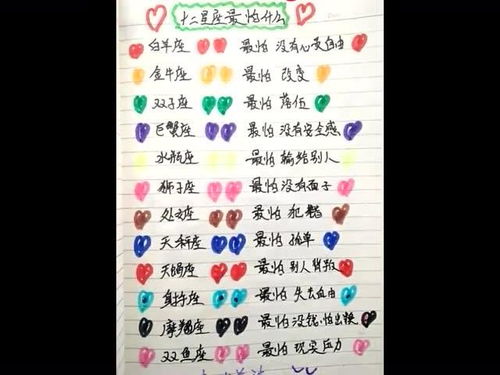 十二星座最怕什么
白羊座 最怕 没有心灵自由
金牛座 最怕 改变
双子座 最怕 落伍
巨蟹座 最怕 没有安全感
水瓶座 最怕 输给别人
狮子座 最怕 没有面子
处女座 最怕 犯错
天秤座 最怕 孤单
天蝎座 最怕 别人背叛
射手座 最怕 失去自由
摩羯座 最怕 没钱·怕出糗
双鱼座 最怕 现实压力